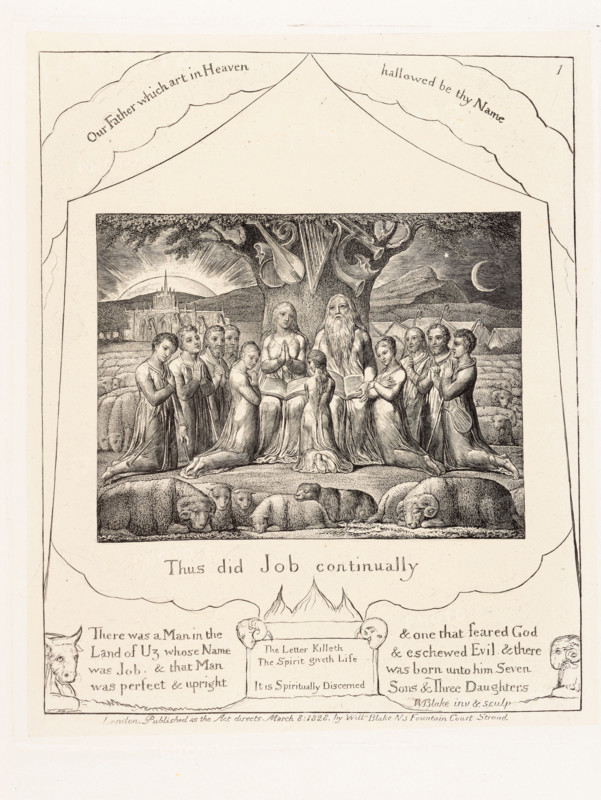 Our Father which art in Heaven
hallowed be thy Name
1
Thus did Job continually
There was a Man in the
Land of Uz whose Name
was Job. & that Man
was perfect & upright
The Letter Killeth
The Spirit giveth Life
It is Spiritually Discerned
& one that feared God
& eschewed Evil & there
was born unto him Seven
Sons & Three Daughters
WBlake inv & sculp
London. Published as the Act directs. March 8: 1828. by Willm Blake N3 Fountain Court Strand